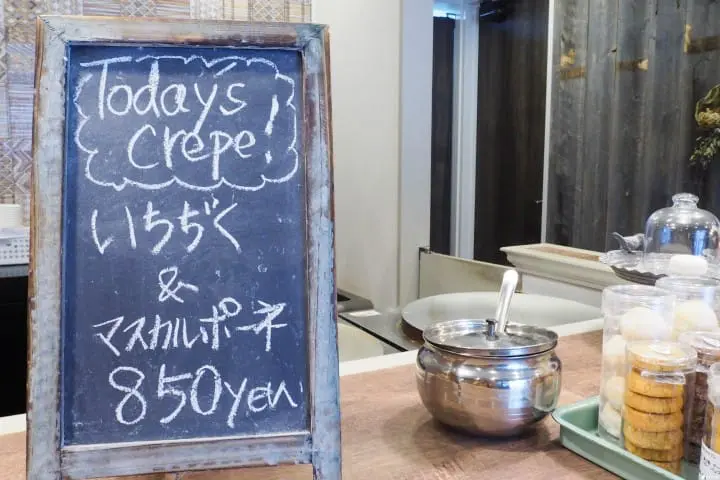 Today's
Crepe!
いちぢく
&
マスカルポーネ
850yen